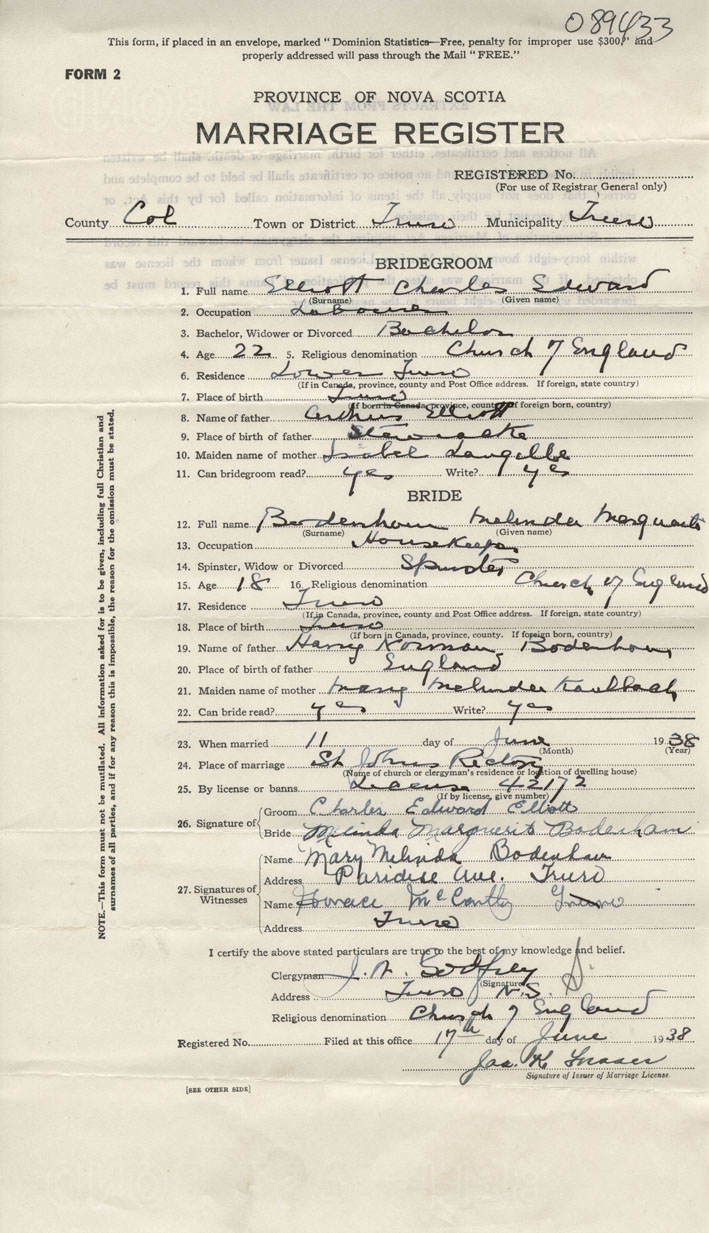 089433
This form, if placed in an envelope, marked "Dominion Statistics—Free, penalty for improper use $300," and
properly addressed will pass through the Mail "FREE."
FORM 2
PROVINCE OF NOVA SCOTIA
MARRIAGE REGISTER
REGISTERED No.
(For use of Registrar General only)
County Col Town or District Truro Municipality Truro
BRIDEGROOM
1. Full name Elliott Charles Edward
(Surname) (Given name)
2. Occupation Labourer
3. Bachelor, Widower or Divorced Bachelor
4. Age 22 5. Religious denomination Church of England
6. Residence Lower Truro
(If in Canada, province, county and Post Office address. If foreign, state country)
7. Place of birth Truro
(If born in Canada, province, county. If foreign born, country)
8. Name of father Arthur Elliott
9. Place of birth of father Stewiacke
10. Maiden name of mother Isabel Langille
11. Can bridegroom read? yes Write? yes
BRIDE
12. Full name Bodenham Melinda Marguerite
(Surname) (Given name)
13. Occupation Housekeeper
14. Spinster, Widow or Divorced Spinster
15. Age 18 16. Religious denomination Church of England
17. Residence Truro
(If in Canada, province, county and Post Office address. If foreign, state country)
18. Place of birth Truro
(If born in Canada, province, county. If foreign born, country)
19. Name of father Harry Norman Bodenham
20. Place of birth of father England
21. Maiden name of mother Mary Melinda Kaulback
22. Can bride read? yes Write? yes
23. When married 11 day of June 1938
(Month) (Year)
24. Place of marriage St Johns Rectory
(Name of church or clergyman's residence or location of dwelling house)
25. By license or banns License 42172
(If by license, give number)
26. Signature of Groom Charles Edward Elliott
Bride Melinda Marguerite Bodenham
27. Signatures of Witnesses
Name Mary Melinda Bodenham
Address Paridise Ave. Truro
Name Horace McCarthy Truro
Address Truro
I certify the above stated particulars are true to the best of my knowledge and belief.
Clergyman J. W. Godfrey
(Signature)
Address Truro N.S.
Religious denomination Church of England
Registered No. Filed at this office 17th day of June 1938
Jas. K. Fraser
Signature of Issuer of Marriage License
[SEE OTHER SIDE]
NOTE.—This form must not be mutilated. All information asked for is to be given, including full Christian and
surnames of all parties, and if for any reason this is impossible, the reason for the omission must be stated.